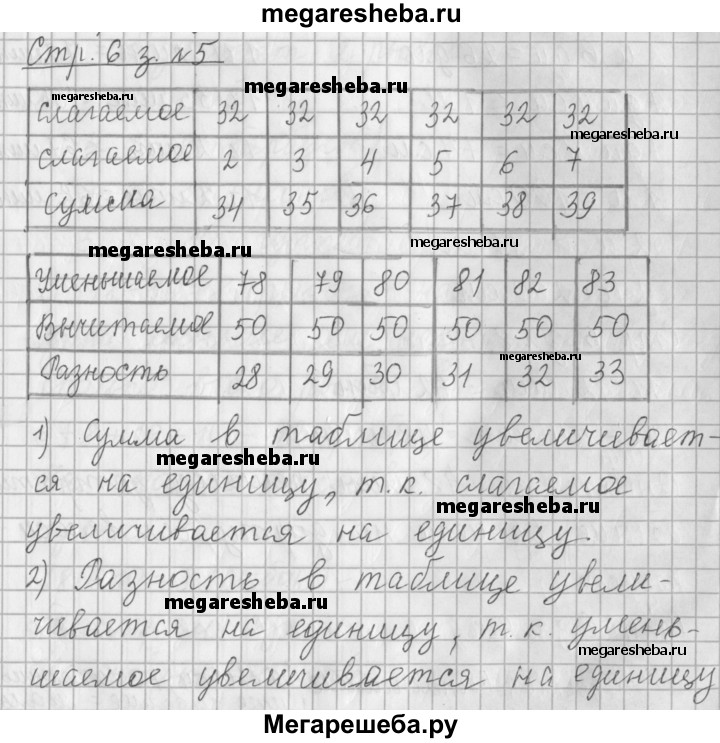 megaresheba.ru
Стр. 6 з. №5
megaresheba.ru
megaresheba.ru
слагаемое 32 32 32 32 32 32
megaresheba.ru
слагаемое 2 3 4 5 6 7
Сумма 34 35 36 37 38 39
megaresheba.ru
megaresheba.ru
Уменьшаемое 78 79 80 81 82 83
Вычитаемое 50 50 50 50 50 50
megaresheba.ru
Разность 28 29 30 31 32 33
1) Сумма в таблице увеличивает-
megaresheba.ru
ся на единицу, т.к. слагаемое
megaresheba.ru
увеличивается на единицу.
2) Разность в таблице увели-
megaresheba.ru
чивается на единицу, т.к. умень-
megaresheba.ru
шаемое увеличивается на единицу
Мегарешеба.ру